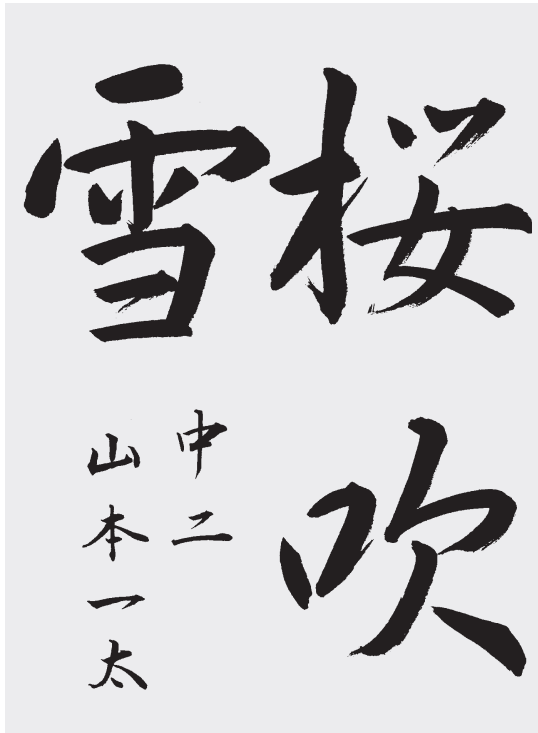 桜吹
雪
中二
山本一太